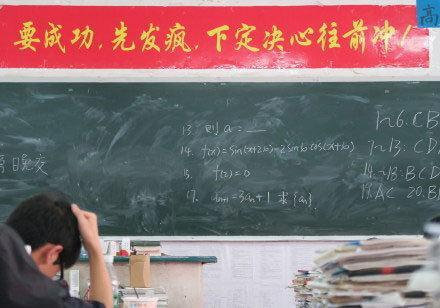 要成功,先发疯,下定决心往前冲!
高
13. 则a=
14. f(x)=sin(x+2φ)-2sinφcos(x+φ)
15. f(2)=0
17. an+1=3an+1 求{an}
日晚交
1~6. CB
7~13: CD
14~13: BCD
19. AC 20. B